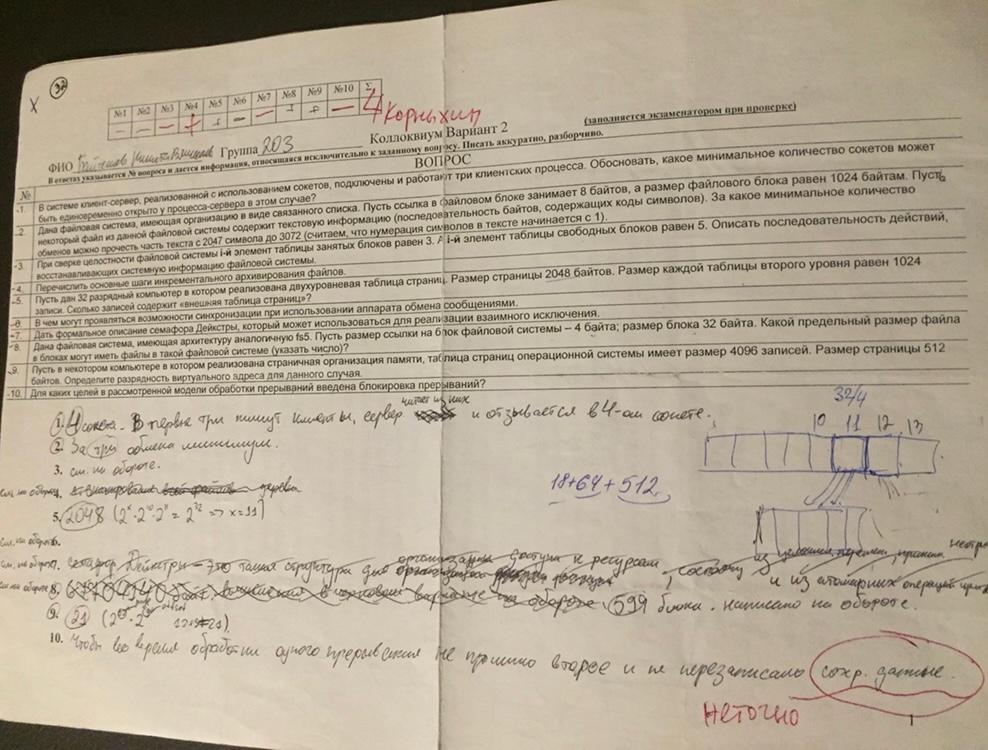 32
X
№1 №2 №3 №4 №5 №6 №7 №8 №9 №10 Σ
— — — + + — — + + — 4
Корныхин
(заполняется экзаменатором при проверке)
Коллоквиум Вариант 2
ФИО Никита Группа 203
В ответах указывается № вопроса и дается информация, относящаяся исключительно к заданному вопросу. Писать аккуратно, разборчиво.
№ ВОПРОС
-1. В системе клиент-сервер, реализованной с использованием сокетов, подключены и работают три клиентских процесса. Обосновать, какое минимальное количество сокетов может
быть единовременно открыто у процесса-сервера в этом случае?
-2 Дана файловая система, имеющая организацию в виде связанного списка. Пусть ссылка в файловом блоке занимает 8 байтов, а размер файлового блока равен 1024 байтам. Пусть
некоторый файл из данной файловой системы содержит текстовую информацию (последовательность байтов, содержащих коды символов). За какое минимальное количество
обменов можно прочесть часть текста с 2047 символа до 3072 (считаем, что нумерация символов в тексте начинается с 1).
-3. При сверке целостности файловой системы i-й элемент таблицы занятых блоков равен 3. А i-й элемент таблицы свободных блоков равен 5. Описать последовательность действий,
восстанавливающих системную информацию файловой системы.
-4. Перечислить основные шаги инкрементального архивирования файлов.
-5. Пусть дан 32 разрядный компьютер в котором реализована двухуровневая таблица страниц. Размер страницы 2048 байтов. Размер каждой таблицы второго уровня равен 1024
записи. Сколько записей содержит «внешняя таблица страниц»?
-6. В чем могут проявляться возможности синхронизации при использовании аппарата обмена сообщениями.
-7. Дать формальное описание семафора Дейкстры, который может использоваться для реализации взаимного исключения.
-8. Дана файловая система, имеющая архитектуру аналогичную fs5. Пусть размер ссылки на блок файловой системы – 4 байта; размер блока 32 байта. Какой предельный размер файла
в блоках могут иметь файлы в такой файловой системе (указать число)?
-9. Пусть в некотором компьютере в котором реализована страничная организация памяти, таблица страниц операционной системы имеет размер 4096 записей. Размер страницы 512
байтов. Определите разрядность виртуального адреса для данного случая.
-10. Для каких целей в рассмотренной модели обработки прерываний введена блокировка прерываний?
32/4
1. 4 сокета. В первые три пишут клиенты, сервер читает из них и отзывается в 4-ом сокете.
10 11 12 13
2. За три обмена минимум.
3. см. на обороте.
18+64+512
см. на обороте 4. дерева
5. 2048 (2ˣ·2¹⁰·2¹¹ = 2³² => x=11)
см. на обороте 6.
см. на обороте 7. семафор Дейкстры – это такая структура для организации доступа к ресурсам, и из атомарных операций
см. на обороте 8. 599 блоков. написано на обороте.
9. 21
10. Чтобы во время обработки одного прерывания не пришло второе и не перезаписало сохр. данные.
неточно
1